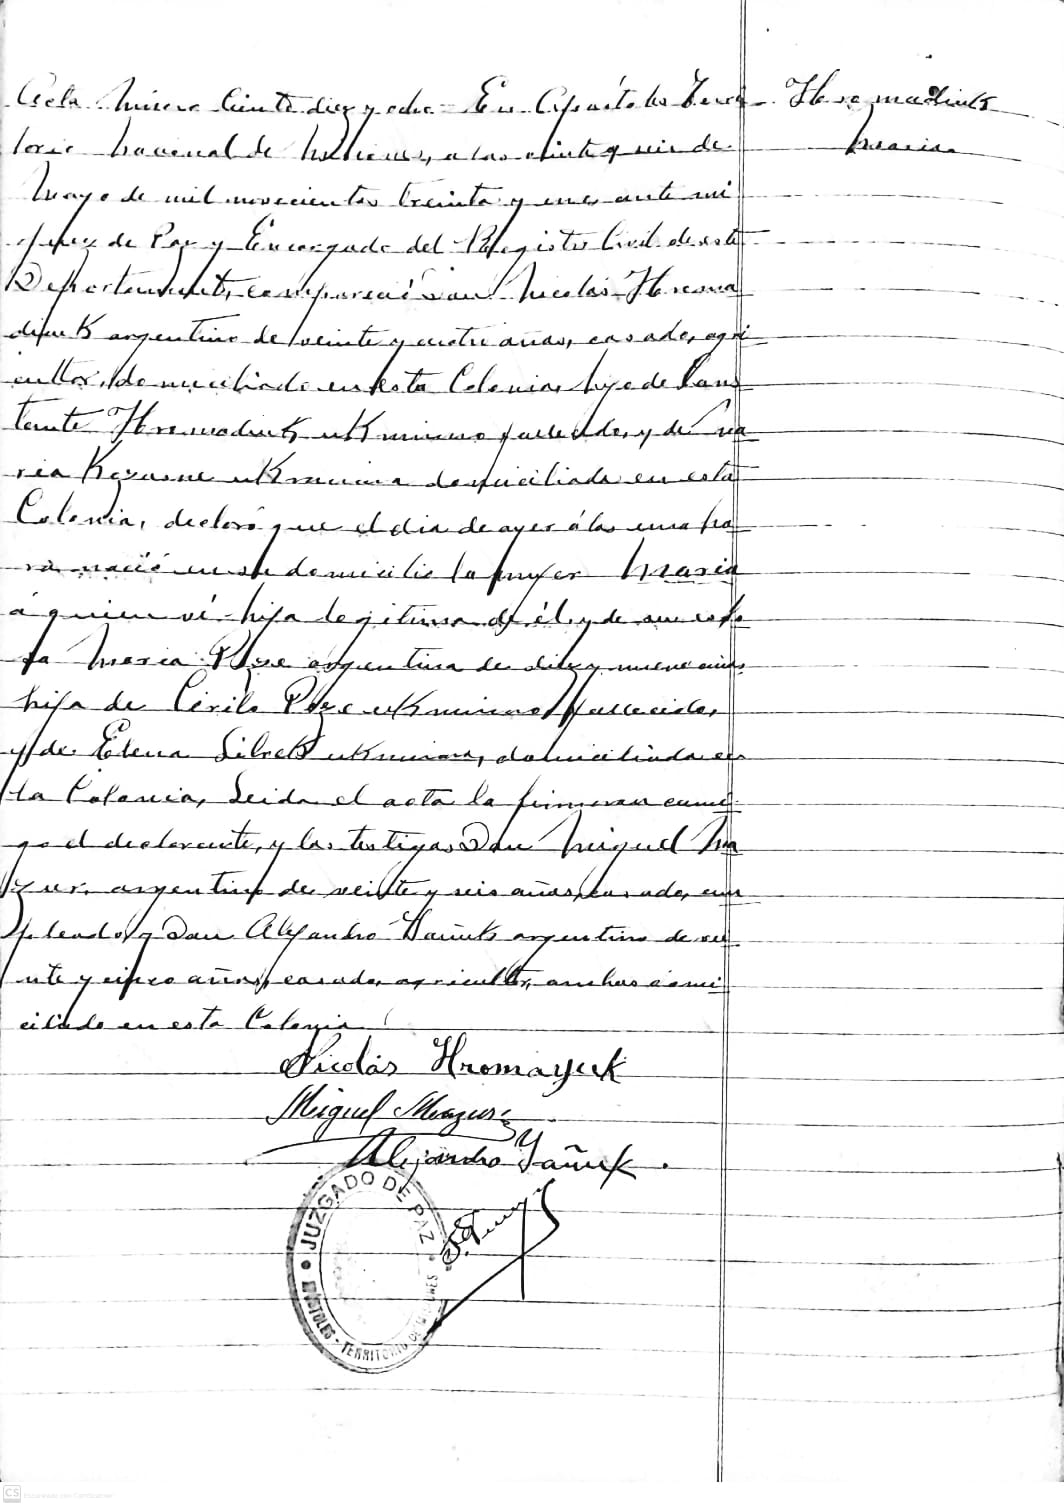 Acta número ciento diez y ocho - En Apóstoles Terri
Hromadiuk
torio Nacional de Misiones, a los veinte y seis de
Maria
Mayo de mil novecientos treinta y uno ante mi
Juez de Paz y Encargado del Registro Civil de este
Departamento, compareció Don Nicolás Hroma
diuk argentino de veinte y cuatro años, casado, agri
cultor, domiciliado en esta Colonia, hijo de Cons
tante Hromadiuk ukranino fallecido, y de Ma
ria ukranina domiciliada en esta
Colonia, declaró que el dia de ayer á las una ho
ra nació en su domicilio la mujer Maria
á quien vi hija legitima de él y de su espo
sa Maria argentina de diez y nueve años
hija de Cirilo ukranino fallecido,
y de Elena ukranina, domiciliada en
la Colonia, Leida el acta la firmaron conmi
go el declarante, y los testigos Don Miguel Ma
zur, argentino de veinte y seis años, casado, em
pleado, y Don Alejandro Yañuk argentino de vei
nte y cinco años, casado, agricultor, ambos domi
ciliado en esta Colonia
Nicolás Hromayuk
Miguel Mazur
Alejandro Yañuk.
JUZGADO DE PAZ
APÓSTOLES - TERRITORIO DE MISIONES